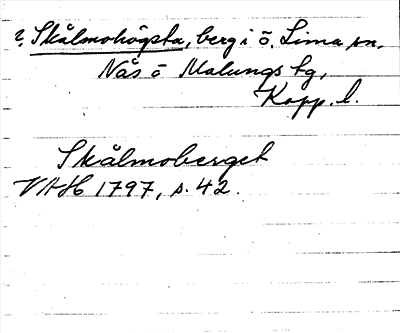 ?, Skålmohögsta, berg i ö. Lima sn.
Nås o Malungs tg,
Kopp. l.
Skålmoberget
VAH 1797, s. 42.